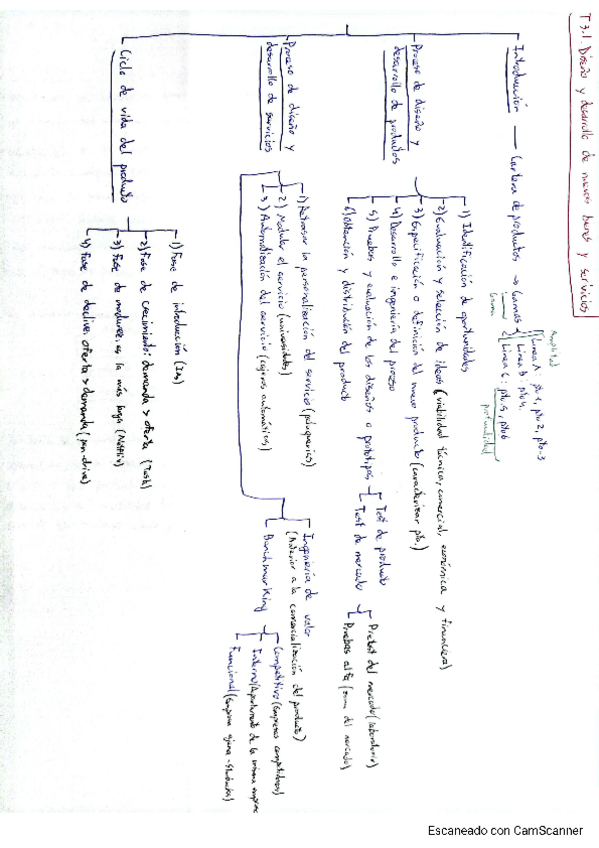 T3.1. Diseño y desarrollo de nuevos bienes y servicios
Introducción — Cartera de productos → Gamas
Amplitud
Línea A: pto 1, pto 2, pto 3
Línea B: pto 4
Línea C: pto 5, pto 6
Gama
profundidad
Proceso de diseño y
desarrollo de productos
1) Identificación de oportunidades
2) Evaluación y selección de ideas (viabilidad técnica, comercial, económica y financiera)
3) Especificación o definición del nuevo producto (caracterizar pto.)
4) Desarrollo e ingeniería del proceso
5) Pruebas y evaluación de los diseños o prototipos
Test de producto
Test de mercado
Pretest del mercado (laboratorio)
Pruebas alfa (zona del mercado)
6) Obtención y distribución del producto
Proceso de diseño y
desarrollo de servicios
1) Retrasar la personalización del servicio (peluquerías)
2) Modular el servicio (universidades)
3) Automatización del servicio (cajeros automáticos)
Ingeniería de valor
(Anterior a la comercialización del producto)
Benchmarking
Competitivo (Empresas competidoras)
Interno (Departamento de la misma empresa)
Funcional (Empresa ajena
Ciclo de vida del producto
1) Fase de introducción
2) Fase de crecimiento: demanda > oferta (Tesla)
3) Fase de madurez, es la más larga (Netflix)
4) Fase de declive: oferta > demanda (pen-drive)
Escaneado con CamScanner